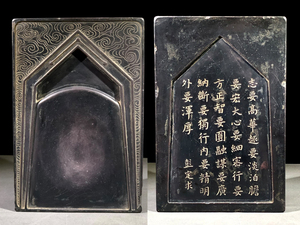 志要高華趣要淡泊膽
要宏大心要細密行要
方正智要圓融謀要廣
納斷要獨行內要精明
外要渾厚
彭定求